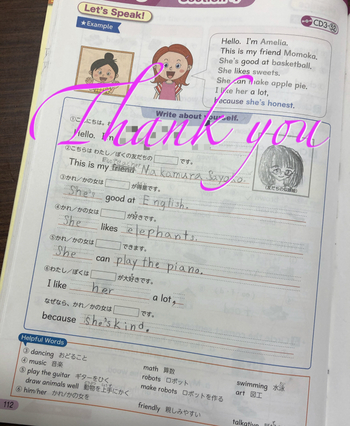 Let's Speak!
CD3-
★Example
Hello. I'm Amelia.
This is my friend Momoka.
She's good at basketball.
She likes sweets.
She can make apple pie.
I like her a lot,
because she's honest.
Thank you
Write about yourself.
Hello. I'm
②こちらは わたし/ぼくの友だちの です。
This is my friend Nakamura Sayaka.
③かれ/かの女は が得意です。
She's good at English.
④かれ/かの女は が好きです。
She likes elephants.
⑤かれ/かの女は できます。
She can play the piano.
⑥わたし/ぼくは が大好きです。
I like her a lot,
なぜなら、かれ/かの女は です。
because she's kind.
Helpful Words
③ dancing おどること
④ music 音楽
⑤ play the guitar ギターをひく
draw animals well 動物を上手にかく
⑥ him/her かれ/かの女を
math 算数
robots ロボット
make robots ロボットを作る
friendly 親しみやすい
swimming 水泳
art 図工
talkative
112